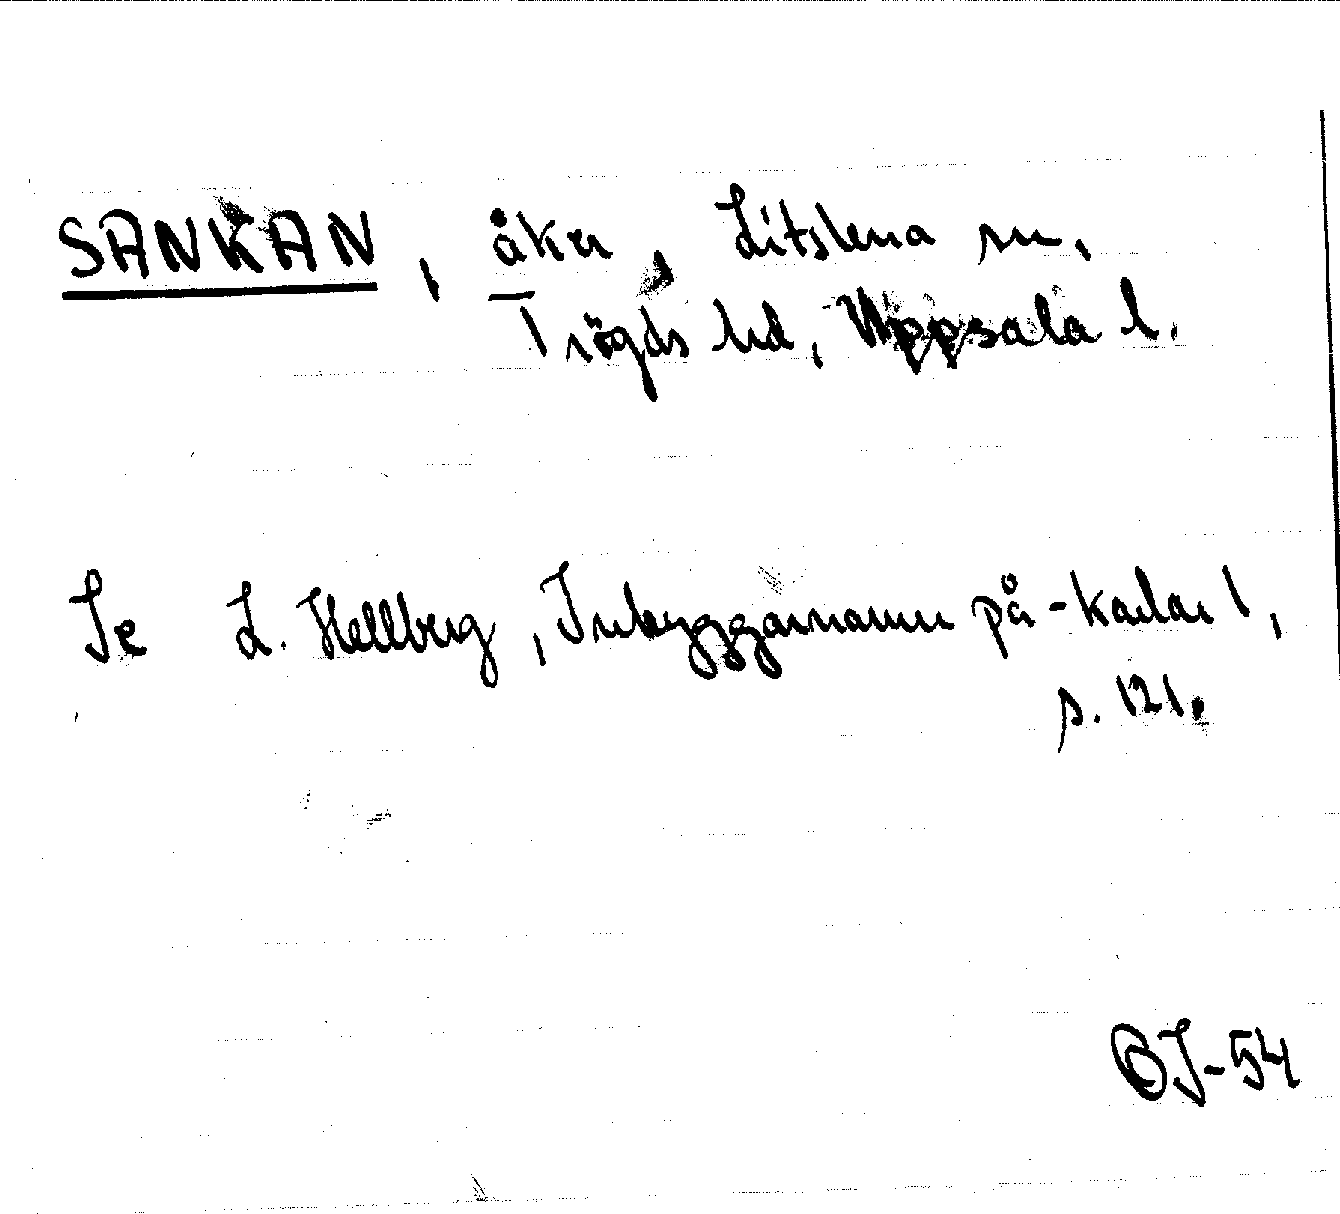 SANKAN, åker, Litslena sn,
Trögds hd, Uppsala l.
Se L. Hellberg, Inbyggarnamn på -karlar 1,
s. 121.
BJ-54